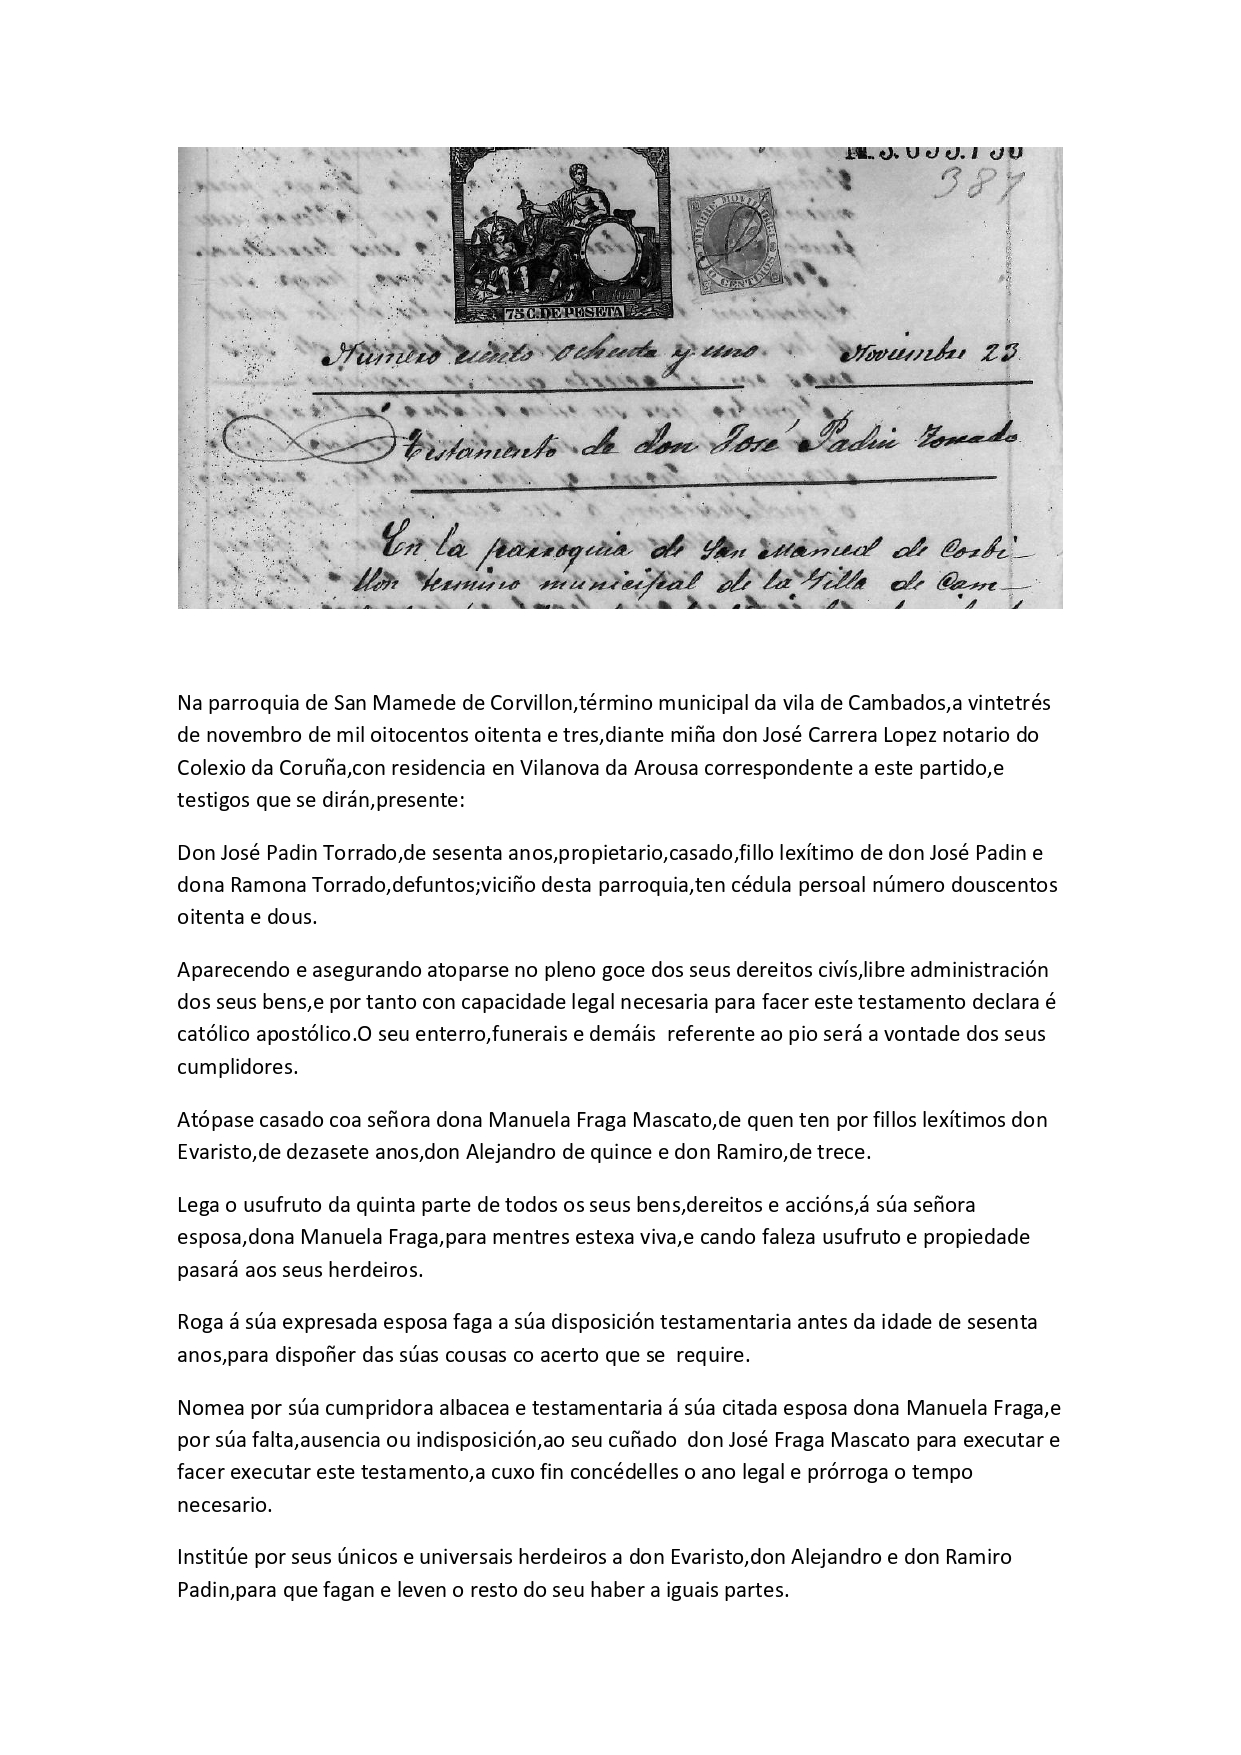 387
TIMBRE MOVIL
10 CENTIMOS
75 C. DE PESETA
Numero ciento ochenta y uno. Noviembre 23
Testamento de don José Padin Torrado
En la parroquia de San Mamed de Corbi-
llon termino municipal de la Villa de Cam-
Na parroquia de San Mamede de Corvillon,término municipal da vila de Cambados,a vintetrés
de novembro de mil oitocentos oitenta e tres,diante miña don José Carrera Lopez notario do
Colexio da Coruña,con residencia en Vilanova da Arousa correspondente a este partido,e
testigos que se dirán,presente:
Don José Padin Torrado,de sesenta anos,propietario,casado,fillo lexítimo de don José Padin e
dona Ramona Torrado,defuntos;viciño desta parroquia,ten cédula persoal número douscentos
oitenta e dous.
Aparecendo e asegurando atoparse no pleno goce dos seus dereitos civís,libre administración
dos seus bens,e por tanto con capacidade legal necesaria para facer este testamento declara é
católico apostólico.O seu enterro,funerais e demáis  referente ao pio será a vontade dos seus
cumplidores.
Atópase casado coa señora dona Manuela Fraga Mascato,de quen ten por fillos lexítimos don
Evaristo,de dezasete anos,don Alejandro de quince e don Ramiro,de trece.
Lega o usufruto da quinta parte de todos os seus bens,dereitos e accións,á súa señora
esposa,dona Manuela Fraga,para mentres estexa viva,e cando faleza usufruto e propiedade
pasará aos seus herdeiros.
Roga á súa expresada esposa faga a súa disposición testamentaria antes da idade de sesenta
anos,para dispoñer das súas cousas co acerto que se  require.
Nomea por súa cumpridora albacea e testamentaria á súa citada esposa dona Manuela Fraga,e
por súa falta,ausencia ou indisposición,ao seu cuñado  don José Fraga Mascato para executar e
facer executar este testamento,a cuxo fin concédelles o ano legal e prórroga o tempo
necesario.
Institúe por seus únicos e universais herdeiros a don Evaristo,don Alejandro e don Ramiro
Padin,para que fagan e leven o resto do seu haber a iguais partes.